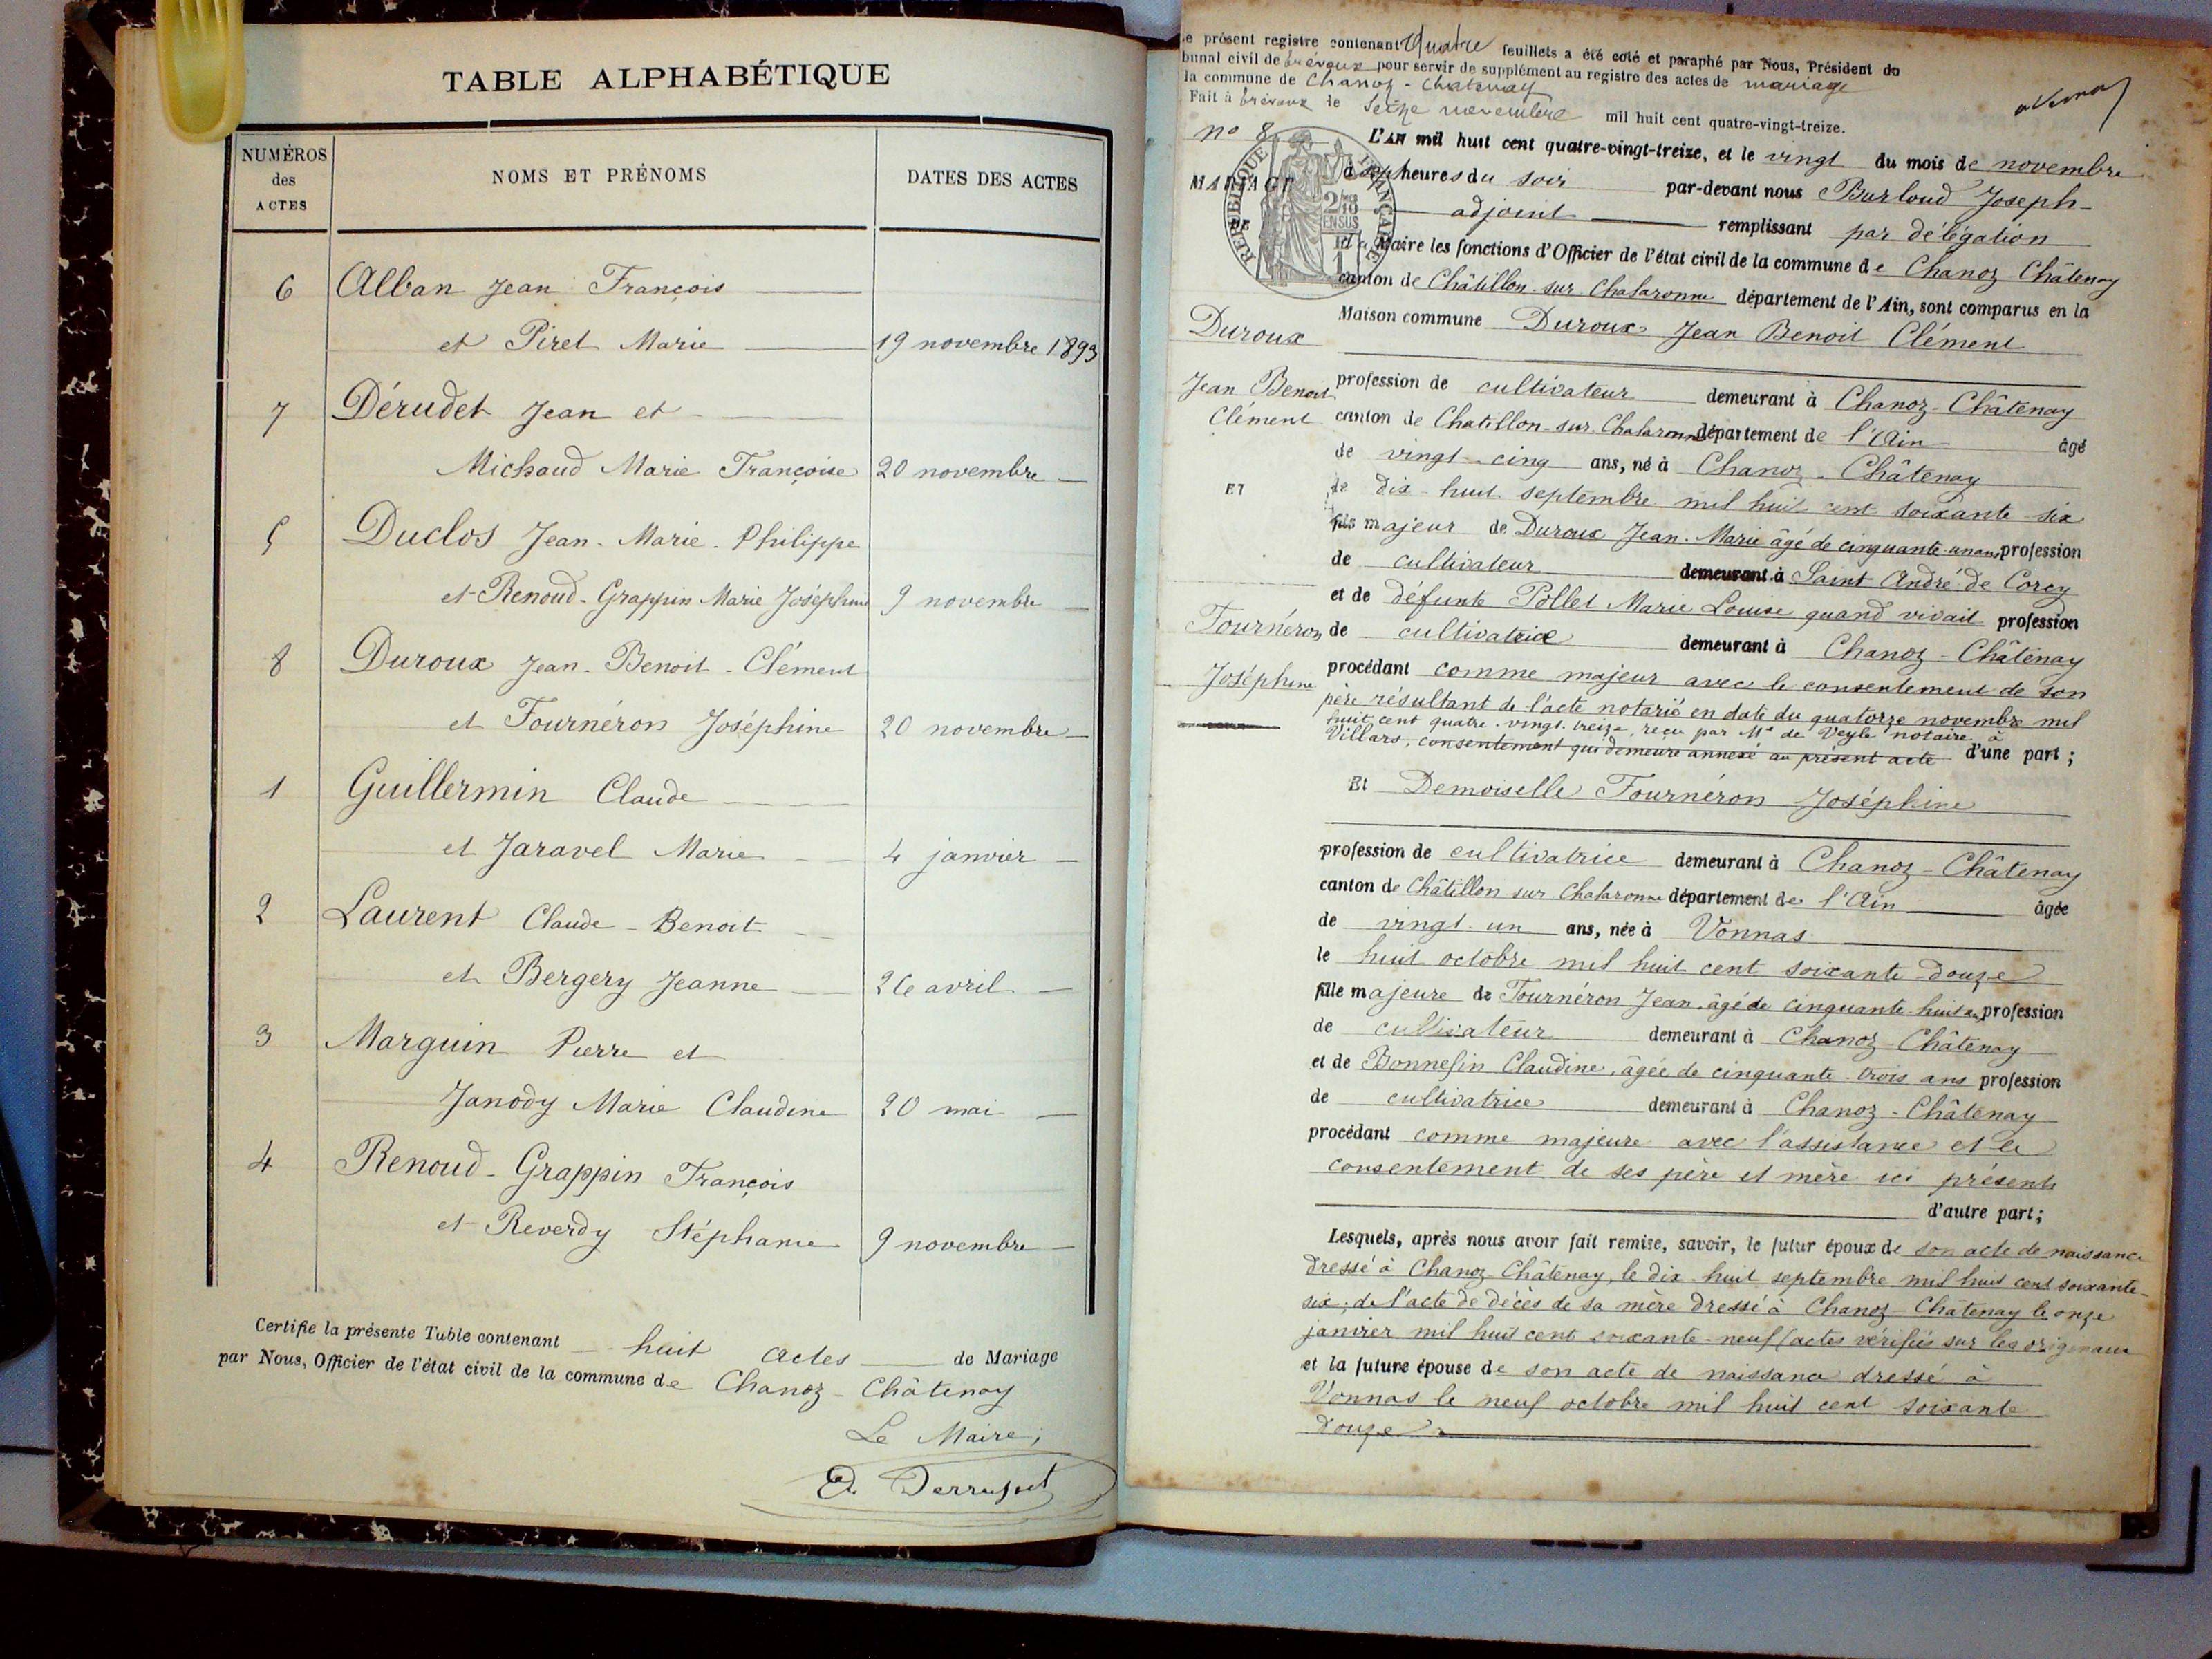 TABLE ALPHABÉTIQUE
NUMÉROS des ACTES
NOMS ET PRÉNOMS
DATES DES ACTES
6 Alban Jean François
et Piret Marie 19 novembre 1893
7 Dérudet Jean et
Michaud Marie Françoise 20 novembre
5 Duclos Jean-Marie-Philippe
et Renoud-Grappin Marie Joséphine 9 novembre
8 Duroux Jean-Benoit-Clément
et Fournéron Joséphine 20 novembre
1 Guillermin Claude
et Jaravel Marie 4 janvier
2 Laurent Claude-Benoit
et Bergery Jeanne 26 avril
3 Marguin Pierre et
Janody Marie Claudine 20 mai
4 Renoud-Grappin François
et Reverdy Stéphanie 9 novembre
Certifie la présente Table contenant huit actes de Mariage
par Nous, Officier de l'état civil de la commune de Chanoz-Châtenay
Le Maire,
Le présent registre contenant Quatre feuillets a été coté et paraphé par Nous, Président du
bunal civil de Trévoux pour servir de supplément au registre des actes de mariage
la commune de Chanoz-Chatenay
Fait à Trévoux le Seize novembre mil huit cent quatre-vingt-treize.
no 8
MARIAGE
DE
Duroux
Jean Benoit
Clément
ET
Fournéron
Joséphine
RÉPUBLIQUE FRANÇAISE
L'AN mil huit cent quatre-vingt-treize, et le vingt du mois de novembre
à sept heures du soir par-devant nous Burloud Joseph
adjoint remplissant par délégation
du Maire les fonctions d'Officier de l'état civil de la commune de Chanoz-Châtenay
canton de Châtillon-sur-Chalaronne département de l'Ain, sont comparus en la
Maison commune Duroux Jean Benoit Clément
profession de cultivateur demeurant à Chanoz-Châtenay
canton de Chatillon-sur-Chalaronne département de l'Ain âgé
de vingt-cinq ans, né à Chanoz-Châtenay
le dix-huit septembre mil huit cent soixante six
fils majeur de Duroux Jean-Marie âgé de cinquante-un ans, profession
de cultivateur demeurant à Saint André de Corcy
et de défunte Pollet Marie Louise quand vivait profession
de cultivatrice demeurant à Chanoz-Châtenay
procédant comme majeur avec le consentement de son
père résultant de l'acte notarié en date du quatorze novembre mil
huit cent quatre-vingt-treize, reçu par Me de Veyle notaire à
Villars, consentement qui demeure annexé au présent acte d'une part;
Et Demoiselle Fournéron Joséphine
profession de cultivatrice demeurant à Chanoz-Châtenay
canton de Châtillon sur Chalaronne département de l'Ain âgée
de vingt-un ans, née à Vonnas
le huit octobre mil huit cent soixante-douze
fille majeure de Fournéron Jean, âgé de cinquante-huit ans, profession
de cultivateur demeurant à Chanoz-Châtenay
et de Bonnefin Claudine, âgée de cinquante-trois ans profession
de cultivatrice demeurant à Chanoz-Châtenay
procédant comme majeure avec l'assistance et le
consentement de ses père et mère ici présents
d'autre part;
Lesquels, après nous avoir fait remise, savoir, le futur époux de son acte de naissance
dressé à Chanoz-Châtenay, le dix-huit septembre mil huit cent soixante-
six; de l'acte de décès de sa mère dressé à Chanoz-Châtenay le onze
janvier mil huit cent soixante-neuf (actes vérifiés sur les originaux
et la future épouse de son acte de naissance dressé à
Vonnas le neuf octobre mil huit cent soixante
douze